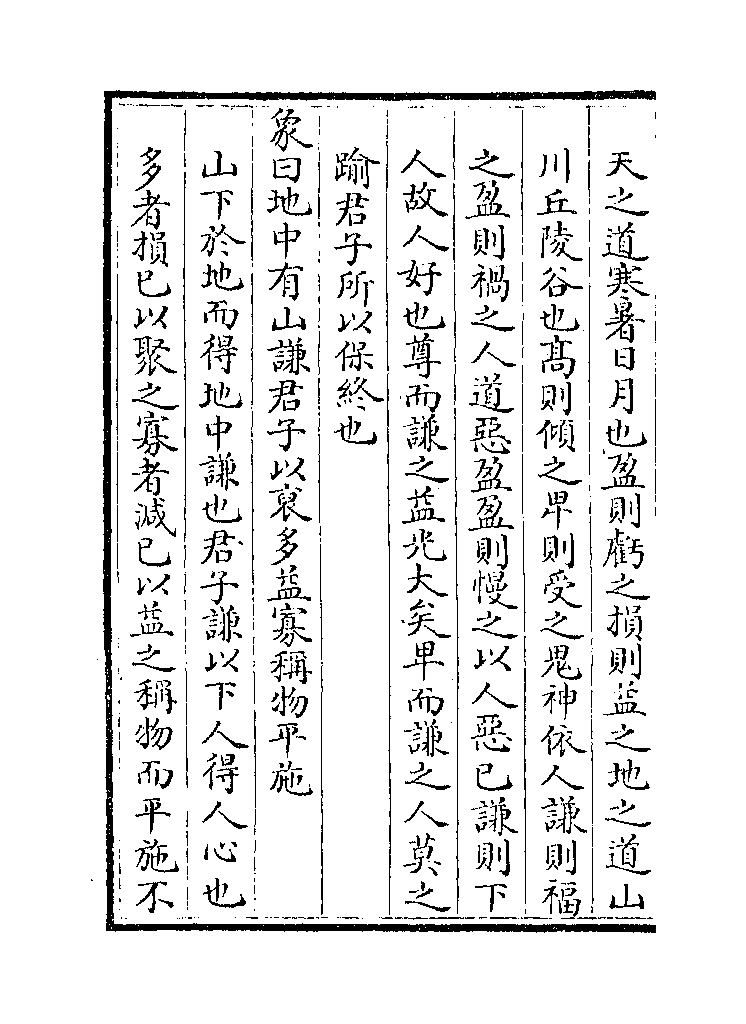 天之道寒暑日月也盈則虧之損則益之地之道山
川丘陵谷也髙則傾之卑則受之鬼神依人謙則福
之盈則禍之人道惡盈盈則慢之以人惡已謙則下
人故人好也尊而謙之益光大矣卑而謙之人莫之
踰君子所以保終也
象曰地中有山謙君子以裒多益寡稱物平施
山下於地而得地中謙也君子謙以下人得人心也
多者損已以聚之寡者減已以益之稱物而平施不